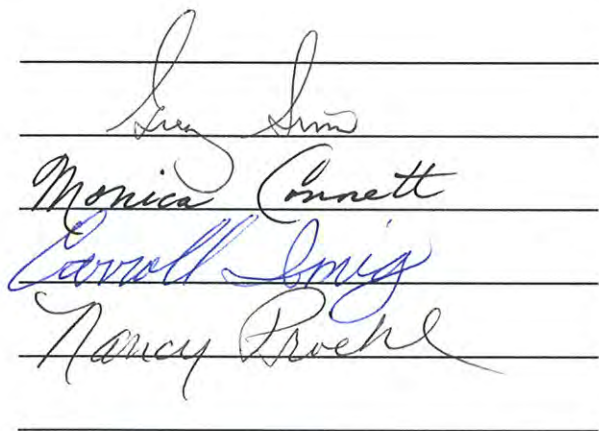 Greg Sinn
Monica Connett
Carroll Imig
Nancy Proehl